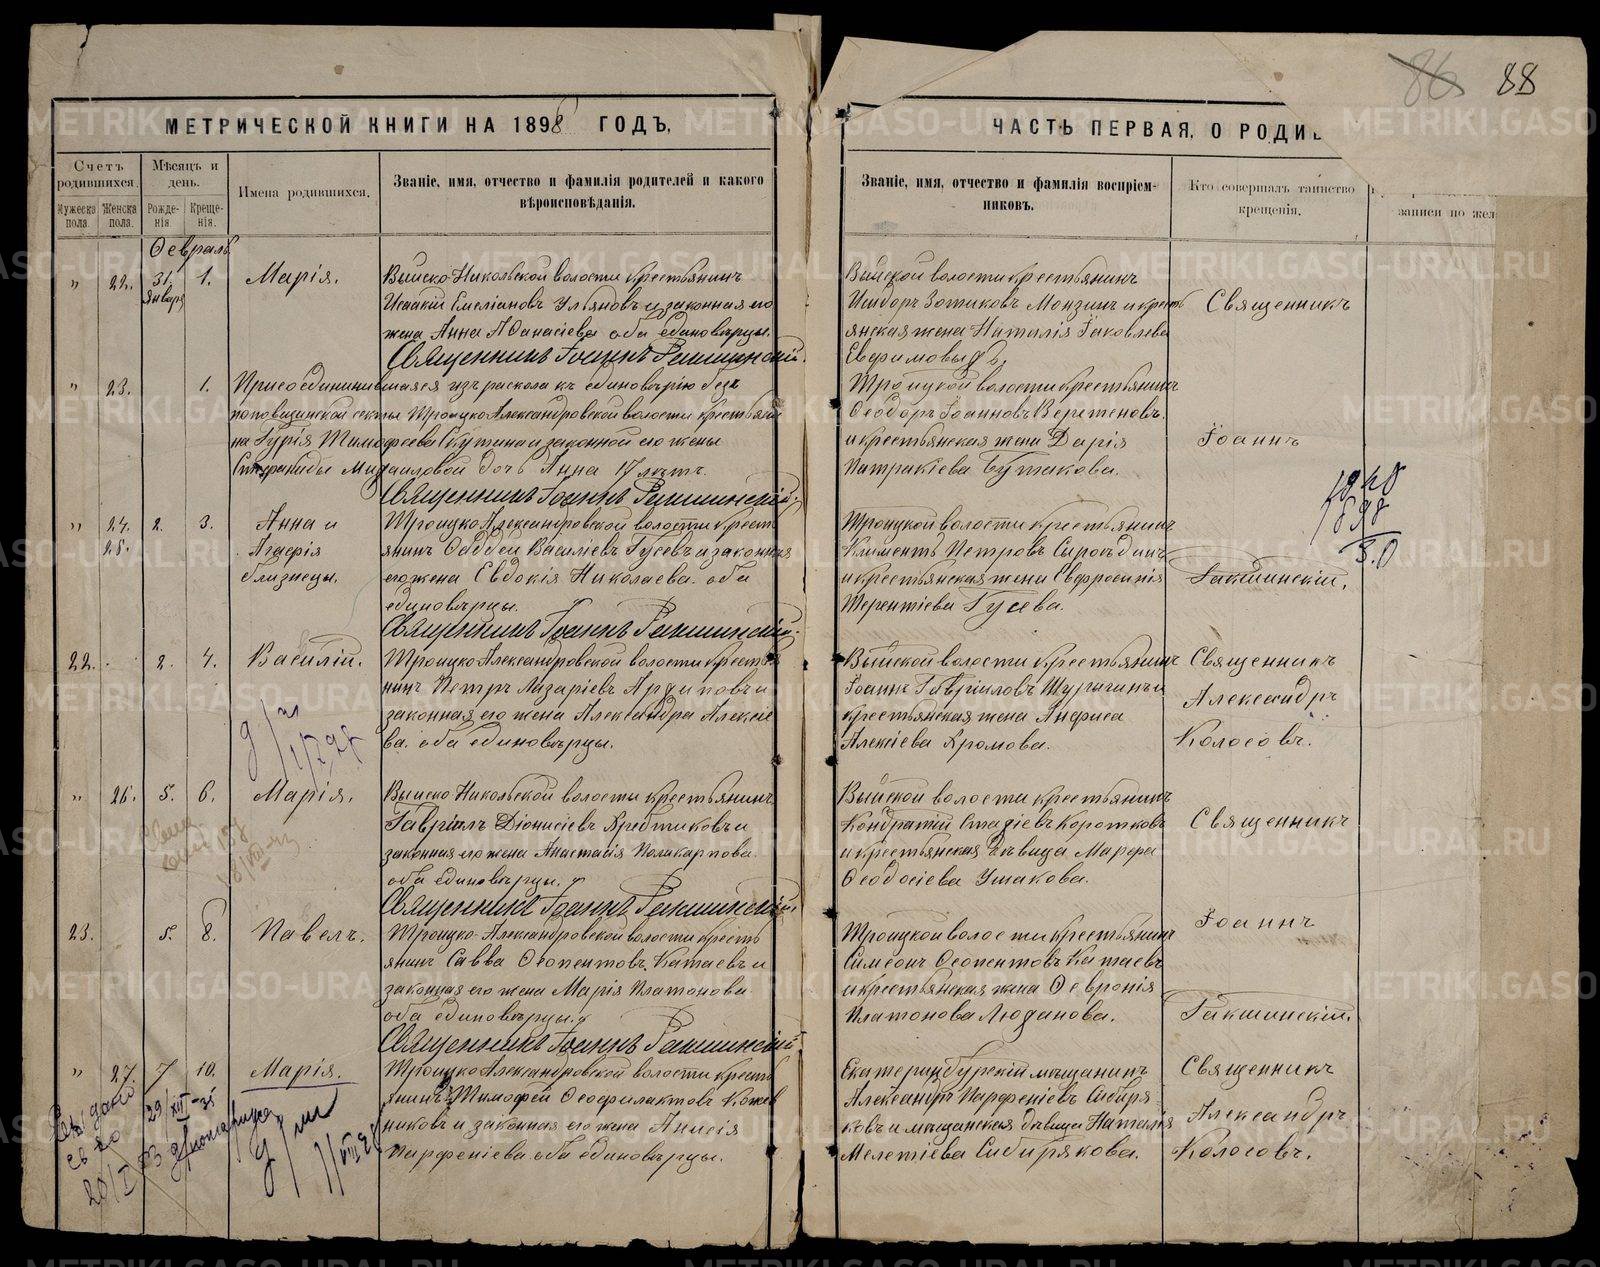 86 88
МЕТРИЧЕСКОЙ КНИГИ НА 1898 ГОДЪ,
ЧАСТЬ ПЕРВАЯ, О РОДИ
Счетъ родившихся.
Мѣсяцъ и день.
Имена родившихся.
Званіе, имя, отчество и фамилія родителей и какого вѣроисповѣданія.
Званіе, имя, отчество и фамилія воспріемниковъ.
Кто совершалъ таинство крещенія.
записи по жел
Мужеска пола.
Женска пола.
Рожденія.
Крещенія.
Февраль
„ 22. 31 января 1. Марія.
Выйско-Никольской волости крестьянинъ
Исаакій Емеліановъ Ульяновъ и законная его
жена Анна Аѳанасіева оба единовѣрцы.
Священникъ Іоаннъ Ракшинскій.
Выйской волости крестьянинъ
Исидоръ Зотиковъ Мокзинъ и кресть
янская жена Наталія Іаковлева
Евфимовыхъ.
Священникъ
„ 23. 1. Присоединившаяся изъ раскола къ единовѣрію безъ
поповщинской секты Троицко-Александровской волости крестьяни
на Гурія Тимофеева Скутина и законной его жены
Стефаниды Михаиловой дочь Анна 17 лѣтъ.
Священникъ Іоаннъ Ракшинскій.
Троицкой волости крестьянинъ
Ѳеодоръ Іоанновъ Веретеновъ
и крестьянская жена Дарія
Патракіева Бутакова.
Іоаннъ
„ 24. 25. 2. 3. Анна и
Агафія
близнецы.
Троицко-Александровской волости кресть
янинъ Ѳаддей Василіевъ Гусевъ и законная
его жена Евдокія Николаева. оба
единовѣрцы.
Священникъ Іоаннъ Ракшинскій.
Троицкой волости крестьянинъ
Климентъ Петровъ Сыроѣдинъ
и крестьянская жена Евфросинія
Терентіева Гусева.
Ракшинскій.
1940
1898
30
22. 2. 4. Василій.
Троицко-Александровской волости крестья
нинъ Петръ Лазаріевъ Архиповъ и
законная его жена Александра Алексіе
ва. оба единовѣрцы.
Выйской волости крестьянинъ
Іоаннъ Гавріиловъ Шурыгинъ и
крестьянская жена Анфиса
Алексіева Хромова.
Священникъ
Александръ
Колосовъ.
„ 26. 5. 6. Марія.
Выйско Никольской волости крестьянинъ
Гавріилъ Діонисіевъ Хребтиковъ и
законная его жена Анастасія Поликарпова
оба единовѣрцы.
Священникъ Іоаннъ Ракшинскій.
Выйской волости крестьянинъ
Кондратій Стахіевъ Коротковъ
и крестьянская дѣвица Марфа
Ѳеодосіева Ушакова.
Священникъ
Іоаннъ
23. 5. 8. Павелъ.
Троицко-Александровской волости кресть
янинъ Савва Ѳеопентовъ Катаевъ и
законная его жена Марія Платонова
оба единовѣрцы.
Священникъ Іоаннъ Ракшинскій.
Троицкой волости крестьянинъ
Симеонъ Ѳеопентовъ Катаевъ
и крестьянская жена Ѳевронія
Платонова Люханова.
Ракшинскій.
„ 27. 7 10. Марія.
Троицко-Александровской волости кресть
янинъ Тимофей Ѳеофилактовъ Кожев
никовъ и законная его жена Анисія
Парфеніева. оба единовѣрцы.
Екатеринбургскій мѣщанинъ
Александръ Парфеніевъ Сибиря
ковъ и мѣщанская дѣвица Наталія
Мелетіева Сибирякова.
Священникъ
Александръ
Колосовъ.
METRIKI.GASO-URAL.RU